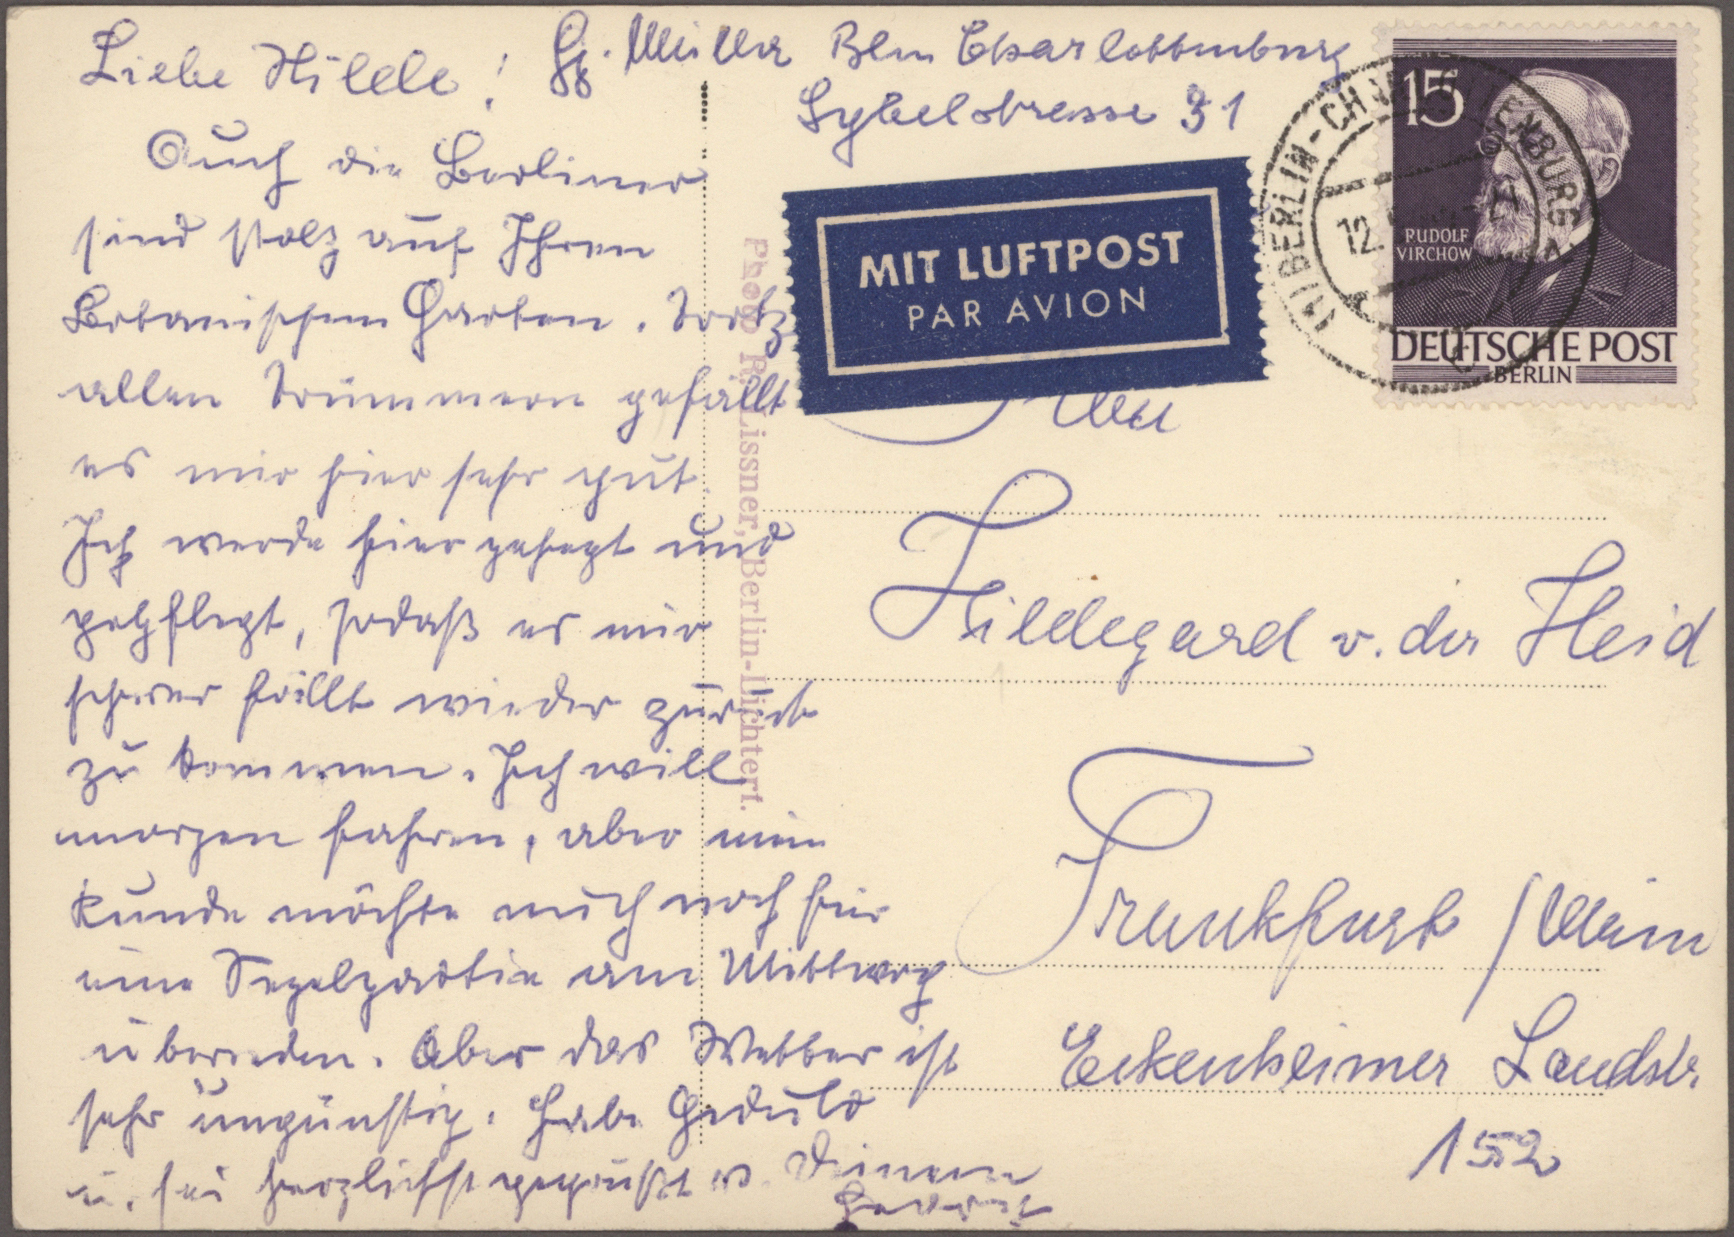 Liebe Hilde!
Auch die Berliner
sind stolz auf Ihren
Botanischen Garten. Trotz
allen Trümmern gefällt
es mir hier sehr gut.
Ich werde hier gehegt und
gepflegt, sodaß es mir
schwer fällt wieder zurück
zu kommen. Ich will
morgen fahren, aber mein
Kunde möchte mich noch für
eine Segelpartie am Mittwoch
überreden. Aber das Wetter ist
sehr ungünstig. Habe Geduld
u. sei herzlichst gegrüßt v. Deinem
Müller Bln Charlottenburg
Sybelstrasse 31
MIT LUFTPOST
PAR AVION
15
RUDOLF
VIRCHOW
DEUTSCHE POST
BERLIN
(1) BERLIN-CHARLOTTENBURG
12.
Photo R. Lissner, Berlin-Lichterf.
Hildegard v. der Heid
Frankfurt / Main
Eckenheimer Landstr.
152